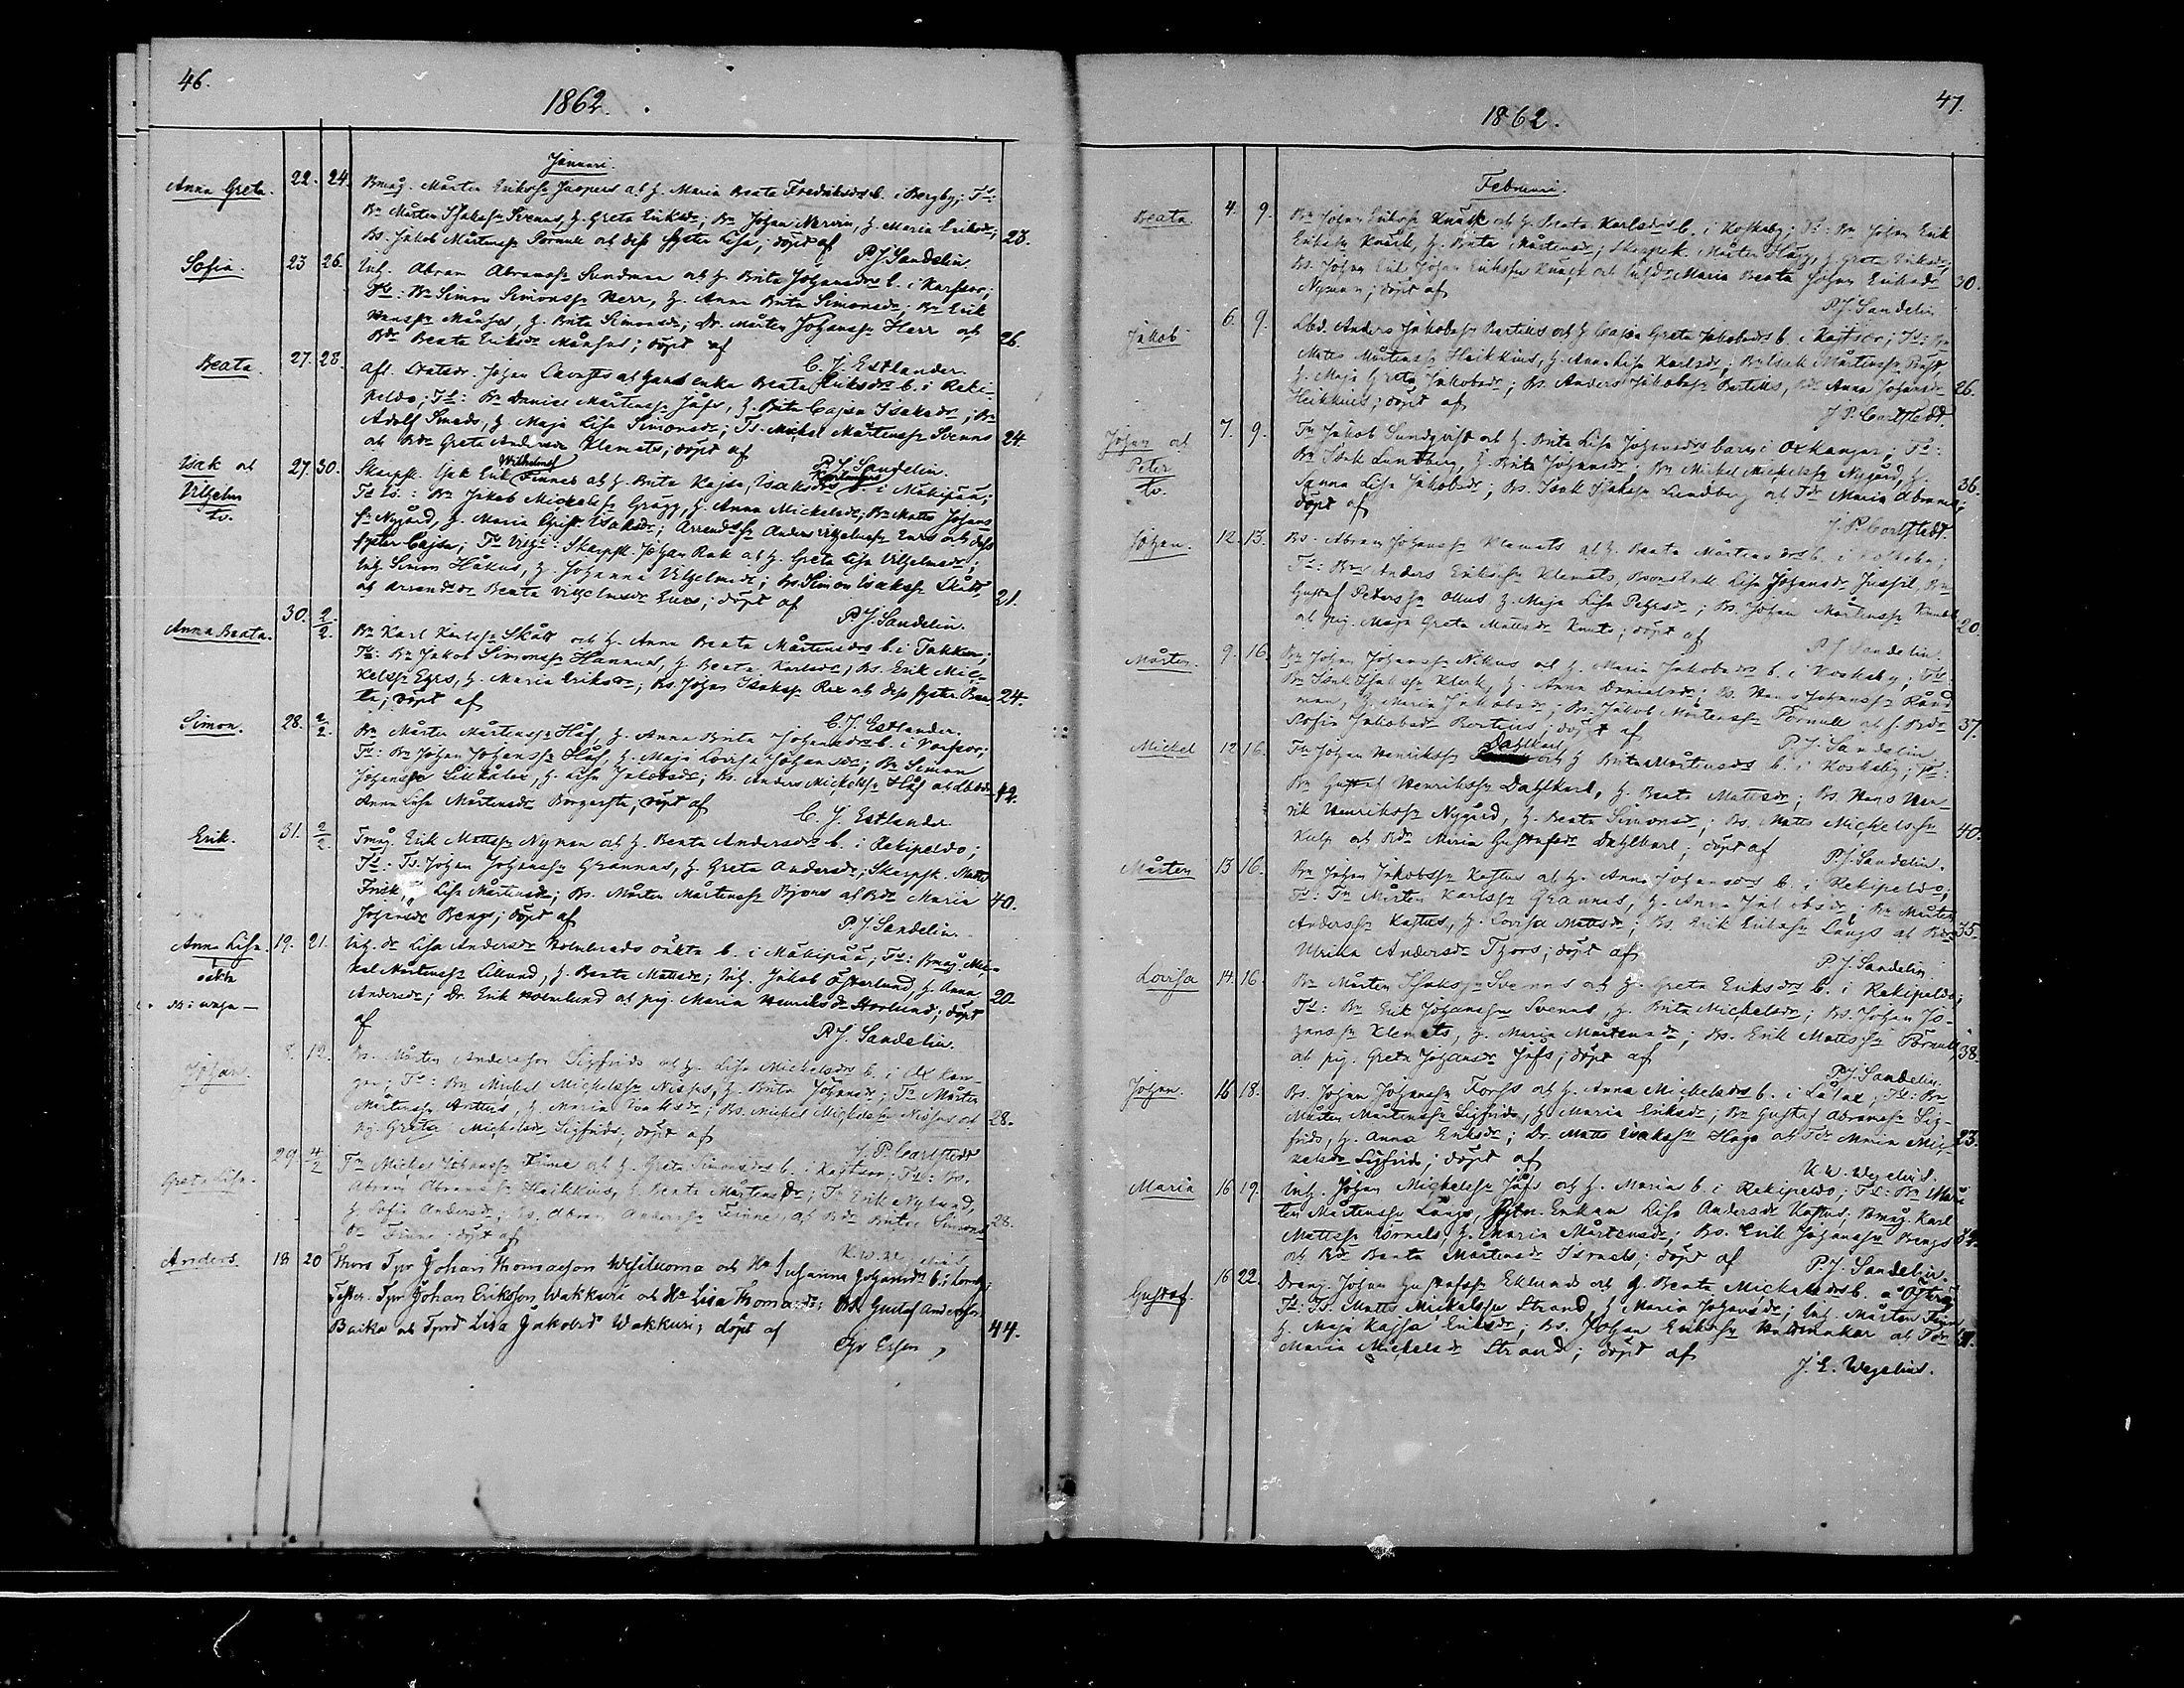 46.
1862.
Januari.
Anna Greta. 22. 24. Bmåg. Mårten Erikss Jaspers och h. Maria Beata Fredriksdrs b. i Bergby; Ts:
Bn Mårten Isakss Svenns, h. Greta Eriksdr; Bn Johan Nervin, h. Maria Eriksdr;
Bs. Jakob Mårtenss Pörnull och dess syster Lisa; döpt af P. J. Sandelin. 23.
Sofia. 23 26. Inh. Abram Abramss Sundman och h. Brita Johansdrs b. i Karfsor;
Ts: Bn Simon Simonss Herr, h. Anna Brita Simonsdr; Bn Erik
Hanss Månsus, h. Brita Simonsdr; Dr. Mårten Johanss Herr och
Bdr Beata Eriksdr Månsus; döpt af C. J. Estlander. 26.
Beata. 27. 28. Afl. Johan och hans enka Beata Eriksdrs b. i Reki-
peldo; Ts: Bn Daniel Mårtenss Jåfs, h. Brita Cajsa Isaksdr; Bn
Adolf Smeds, h. Maja Lisa Simonsdr; Ts. Mickel Mårtenss Svenns
och Bdr Greta Andersdr Klemets; döpt af P. J. Sandelin. 24.
Isak och Vilhelm tv. 27. 30. Skarpsk. Isak Erik Wilhelmss Finne och h. Brita Kajsa Isaksdrs b. i Mäkipää;
Ts Is.: Bn Jakob Mickelss Grägg, h. Anna Mickelsdr; Bn Matts Johans
s Nygård, h. Maria Isaksdr; Arrends Anders Vilhelmss Enrs och dess
syster Cajsa; Ts Vilh: Skarpsk. Johan Rak och h. Greta Lisa Vilhelmsdr;
Inh. Simon Håkus, h. Johanna Vilhelmsdr; Bs Simon Isakss Skått,
och Arrendsdr Beata Vilhelmsdr Enrs; döpt af P. J. Sandelin. 21.
Anna Beata. 30. 2/2. Bn Karl Karlss Skått och h. Anna Beata Mårtensdrs b. i Takkor;
Ts: Bn Jakob Simonss Hannus, h. Beata Karlsdr; Bs. Erik Mic-
kelss Eyrs, h. Maria Eriksdr; Bs. Johan Isakss Rex och dess syster Bea-
ta; döpt af C. J. Estlander. 24.
Simon. 28. 2/2. Bn Mårten Mårtenss Håf, h. Anna Brita Johansdrs b. i Karfsor;
Ts: Bn Johan Johanss Håf, h. Maja Lovisa Johansdr; Bn Simon
Johanss Lillkålax, h. Lisa Jakobsdr; Bs. Anders Mickelss Håf och
Anna Lisa Mårtensdr Borgarsta; döpt af C. J. Estlander. 42.
Erik. 31. 2/2. Tmåg. Erik Mattss Nyman och h. Beata Andersdrs b. i Rekipeldo;
Ts: Ts. Johan Johanss Grannas, h. Greta Andersdr; Skarpsk. Matts
Frisk, Lisa Mårtensdr; Bs. Mårten Mårtenss Björns och Bdr Maria
Johansdr Bengs; döpt af P. J. Sandelin. 40.
Anna Lisa. oäkta 19. 21. Inh. dr Lisa Andersdr Holmlunds oäkta b. i Mäkipää; Ts: Bmåg. Mic-
kel Mårtenss Lillund, h. Beata Mattsdr; Inh. Jakob Österlund, h. Anna
Andersdr; Dr. Erik Holmlund och pig. Maria Henriksdr Storlund; döpt
af P. J. Sandelin. 20.
Johan. 12. Bs. Mårten Andersson Sigfrids och h. Lisa Mickelsdrs b. i Oxkan-
gar; Ts: Bn Mickel Mickelss Nissus, h. Brita Johansdr; Tn Mårten
Mårtenss Anttus, h. Maria Isaksdr; Bs. Mickel Mickelss Nissus och
pig. Greta Mickelsdr Sigfrids, döpt af J. P. Carlstedt 28.
Greta Lisa. 29 4/2 Tn Mickel Johanss Finne och h. Greta Simonsdrs b. i Kaitsor; Ts: Bn.
Abram Abramss Haikkius, h. Beata Mårtensdr; Tn Erik Nylund,
h. Sofia Andersdr; Bs. Abram Anderss Finne, och Bdr Brita Simons
dr Finne; döpt af K. W. Wegelius 28.
Anders 18 20 Thors Tpr Johan Thomasson och Hu Susanna Johansdrs b. i
Tester. Tpr Johan Eriksson Wakkuri och Hu Lisa Thomasdr; Bs. Gustaf Andersson
Backa och Tprd Lisa Jakobsd Wakkuri; döpt af 44.
47.
1862.
Februari.
Beata. 4. 9. Bn Johan Erikss Knåsk och h. Beata Karlsdrs b. i Koskeby; Ts: Bn Johan Erik
Erikss Knåsk, h. Brita Mårtensdr; Skarpsk. Mårten Hägg, h. Greta Eriksdr;
Bs. Johan Erik Johan Erikss Knåsk och Inhdr Maria Beata Johan Eriksdr
Nyman; döpt af P. J. Sandelin 30.
Jakob 6. 9. Lbd. Anders Jakobss Bertills och h. Cajsa Greta Jakobsdrs b. i Kaitsor; Ts: Bn
Matts Mårtenss Heikkius, h. Anna Lisa Karlsdr; Bn Isak Mårtenss
h. Maja Greta Jakobsdr; Bs. Anders Jakobss Bertills, Bdr Anna Johansdr
Heikkius; döpt af J. P. Carlstedt. 26.
Johan och Peter tv. 7. 9. Tn Jakob Sundqvist och h. Brita Lisa Johansdrs barn i Oxkangar; Ts:
Bn Isak Lundberg, h. Brita Johansdr; Bn Mickel Mickelss Nygård, h.
Sanna Lisa Jakobsdr; Bs. Isak Isakss Lundberg och Tdr Maria Abramsdr;
döpt af J. P. Carlstedt. 36.
Johan. 12. 13. Bs. Abram Johanss Klemets och h. Beata Mårtensdrs b. i Koskeby;
Ts: Bn Anders Erikss Klemets, Lisa Johansdr Jussil, Bn
Gustaf Peterss Ollus h. Maja Lisa Petersdr; Bs. Johan Mårtenss
och pig. Maja Greta Mattsdr Knuts; döpt af P. J. Sandelin. 20.
Mårten. 9. 16. Bn Johan Johanss Nikus och h. Maria Jakobsdrs b. i Koskeby; Ts:
Bn Isak Isakss Klerk, h. Anna Danielsdr; Bs. Hans Johanss Rånd
man, h. Maria Jakobsdr; Bs. Jakob Mårtenss Pörnull och h. Bdr
Sofia Jakobsdr Bertius; döpt af P. J. Sandelin 37.
Mickel 12 16. Tn Johan Henrikss Dahlkarl och h Brita Mårtensdrs b. i Koskeby; Ts:
Bn Gustaf Henrikss Dahlkarl, h. Beata Mattsdr; Bs. Hans Hen-
rik Henrikss Nygård, h. Beata Simonsdr; Bs. Matts Mickelss
Kulp och Bdr Maria Gustafsdr Dahlkarl; döpt af P. J. Sandelin. 40.
Mårten 13 16. Bn Johan Jakobss Kaftus och h. Anna Johansdrs b. i Rekipeldo;
Ts: Tn Mårten Karlss Grannas, h. Anna Jakobsdr; Bn Mårten
Anderss Kaftus, h. Lovisa Mattsdr; Bs. Erik Erikss Långs och Bdr
Ulrika Andersdr Thors; döpt af P. J. Sandelin 35.
Lovisa 14. 16. Bn Mårten Isakss Svenns och h. Greta Eriksdrs b. i Rekipeldo;
Ts: Bn Erik Johanss Svenns, h. Brita Mickelsdr; Bs. Johan Jo-
hanss Klemets, h. Maria Mårtensdr; Bs. Erik Mattss Pörnull
och pig. Greta Johansdr Jåfs; döpt af P. J. Sandelin. 38.
Johan. 16 18. Bs. Johan Johanss Forss och h. Anna Mickelsdrs b. i Lålax; Ts: Bn
Mårten Mårtenss Sigfrids, h. Maria Eriksdr; Bn Gustaf Abramss Sig-
frids, h. Anna Eriksdr; Dr. Matts Isakss Haga och Tdr Maria Mic-
kelsdr Sigfrids; döpt af K. W. Wegelius. 23.
Maria 16 19. Inh. Johan Mickelss Jåfs och h. Marias b. i Rekipeldo; Ts: Bn Mår
ten Mårtenss Långs, Enkan Lisa Andersdr Kaftus; Bmåg. Karl
Mattss Isräels, h. Maria Mårtensdr; Bs. Erik Johanss Bengs
och Bdr Beata Mårtensdr Israels; döpt af P. J. Sandelin.
Gustaf. 16 22. Dräng. Johan Gustafss Eklund och h Beata Mickelsdrs b.
Ts: Ts. Matts Mickelss Strand, h Maria Johansdr; Inh. Mårten
h. Maja Kajsa Eriksdr; Bs. Johan Erikss och Tdr
Maria Mickelsdr Strand; döpt af J. E. Wegelius.